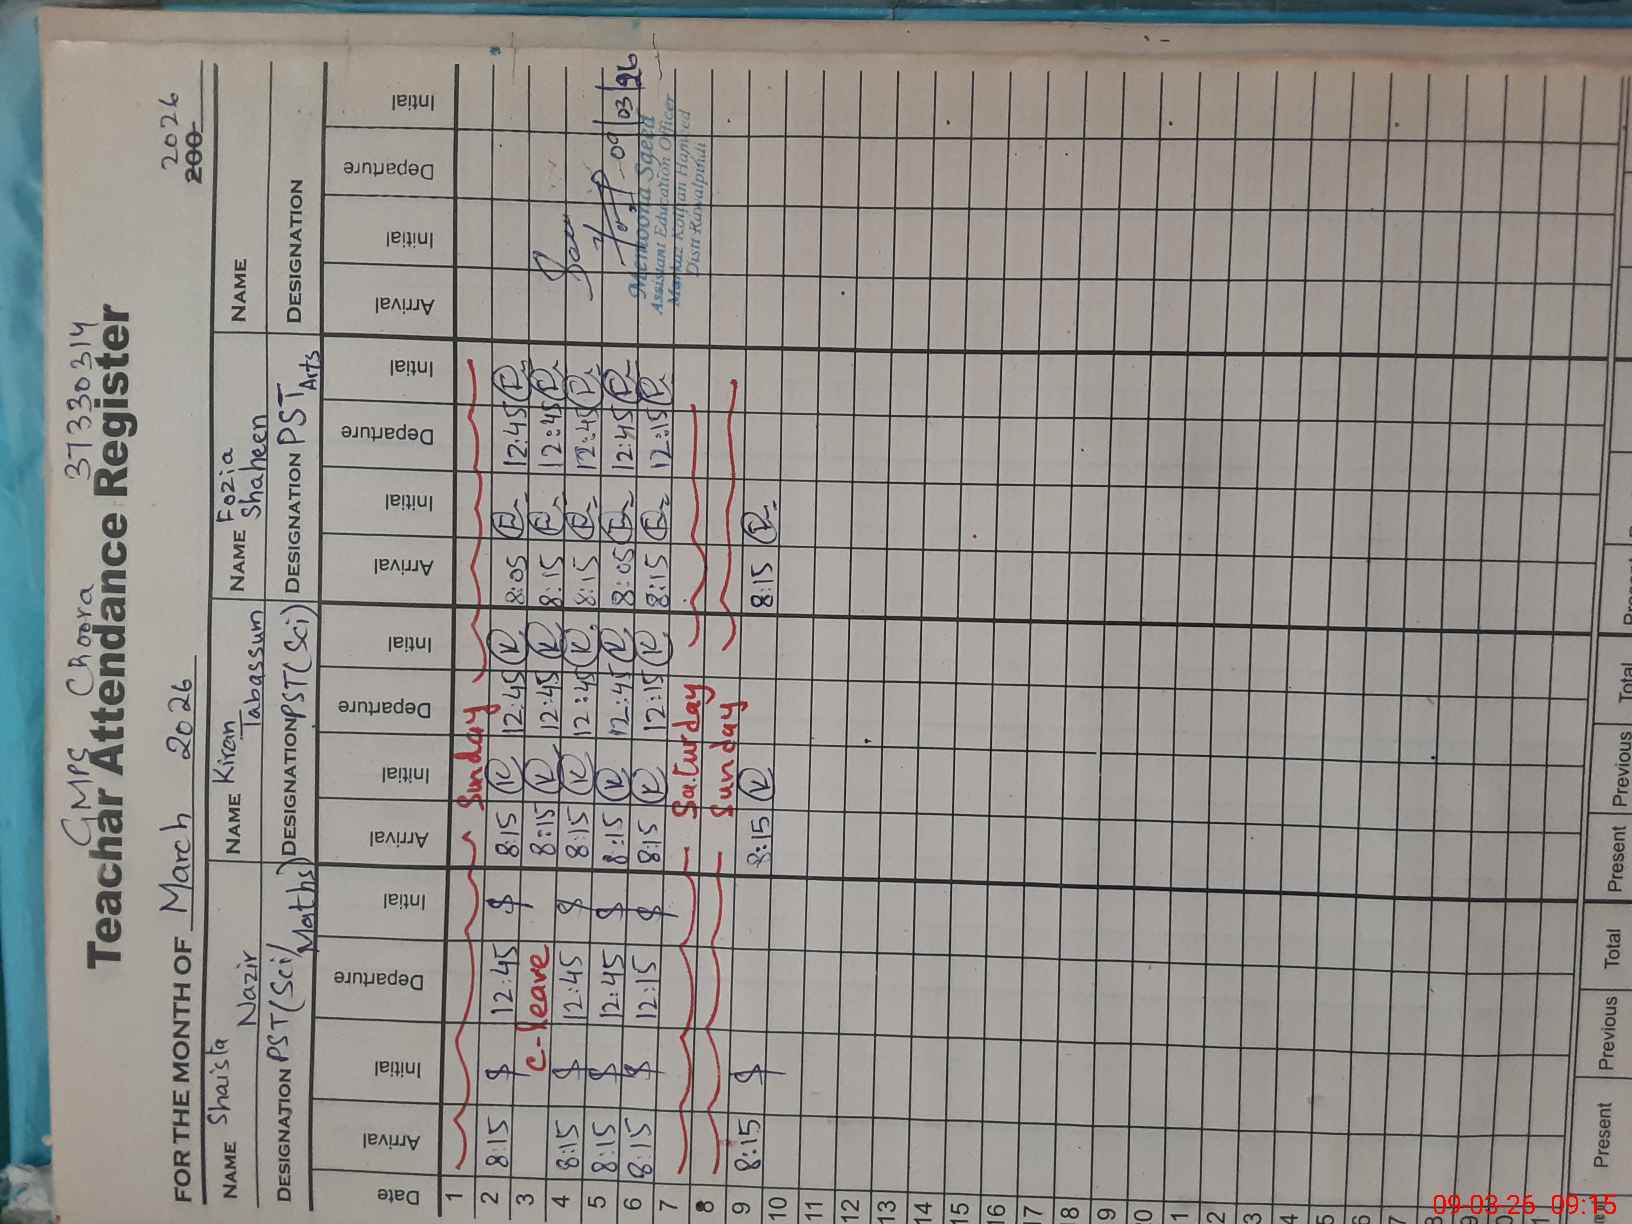 GMPS Choora 37330314
Teachar Attendance Register
FOR THE MONTH OF March 2026 2026
200
NAME Shaista Nazir NAME Kiran Tabassum NAME Fozia Shaheen NAME
DESIGNATION PST(Sci/Maths) DESIGNATION PST(Sci) DESIGNATION PST Arts DESIGNATION
Date Arrival Initial Departure Intial Arrival Initial Departure Intial Arrival Initial Departure Intial Arrival Initial Departure Intial
1 Sunday
2 8:15 $ 12:45 $ 8:15 K 12:45 K 8:05 12:45
3 C-leave 8:15 K 12:45 K 8:15 12:45
4 8:15 $ 12:45 $ 8:15 K 12:45 K 8:15 12:45
5 8:15 $ 12:45 $ 8:15 K 12:45 K 8:05 12:45
6 8:15 $ 12:15 $ 8:15 K 12:15 K 8:15 12:15
7 Saturday
8 Sunday
9 8:15 $ 8:15 K 8:15
09/03/26
Memoona Saeed
Assistant Education Officer
Markaz
Distt Rawalpindi
10
11
12
13
14
15
16
17
18
9
20
1
2
3
4
5
6
7
8
9
0
1
Present Previous Total Present Previous Total
09-03-26 09:15